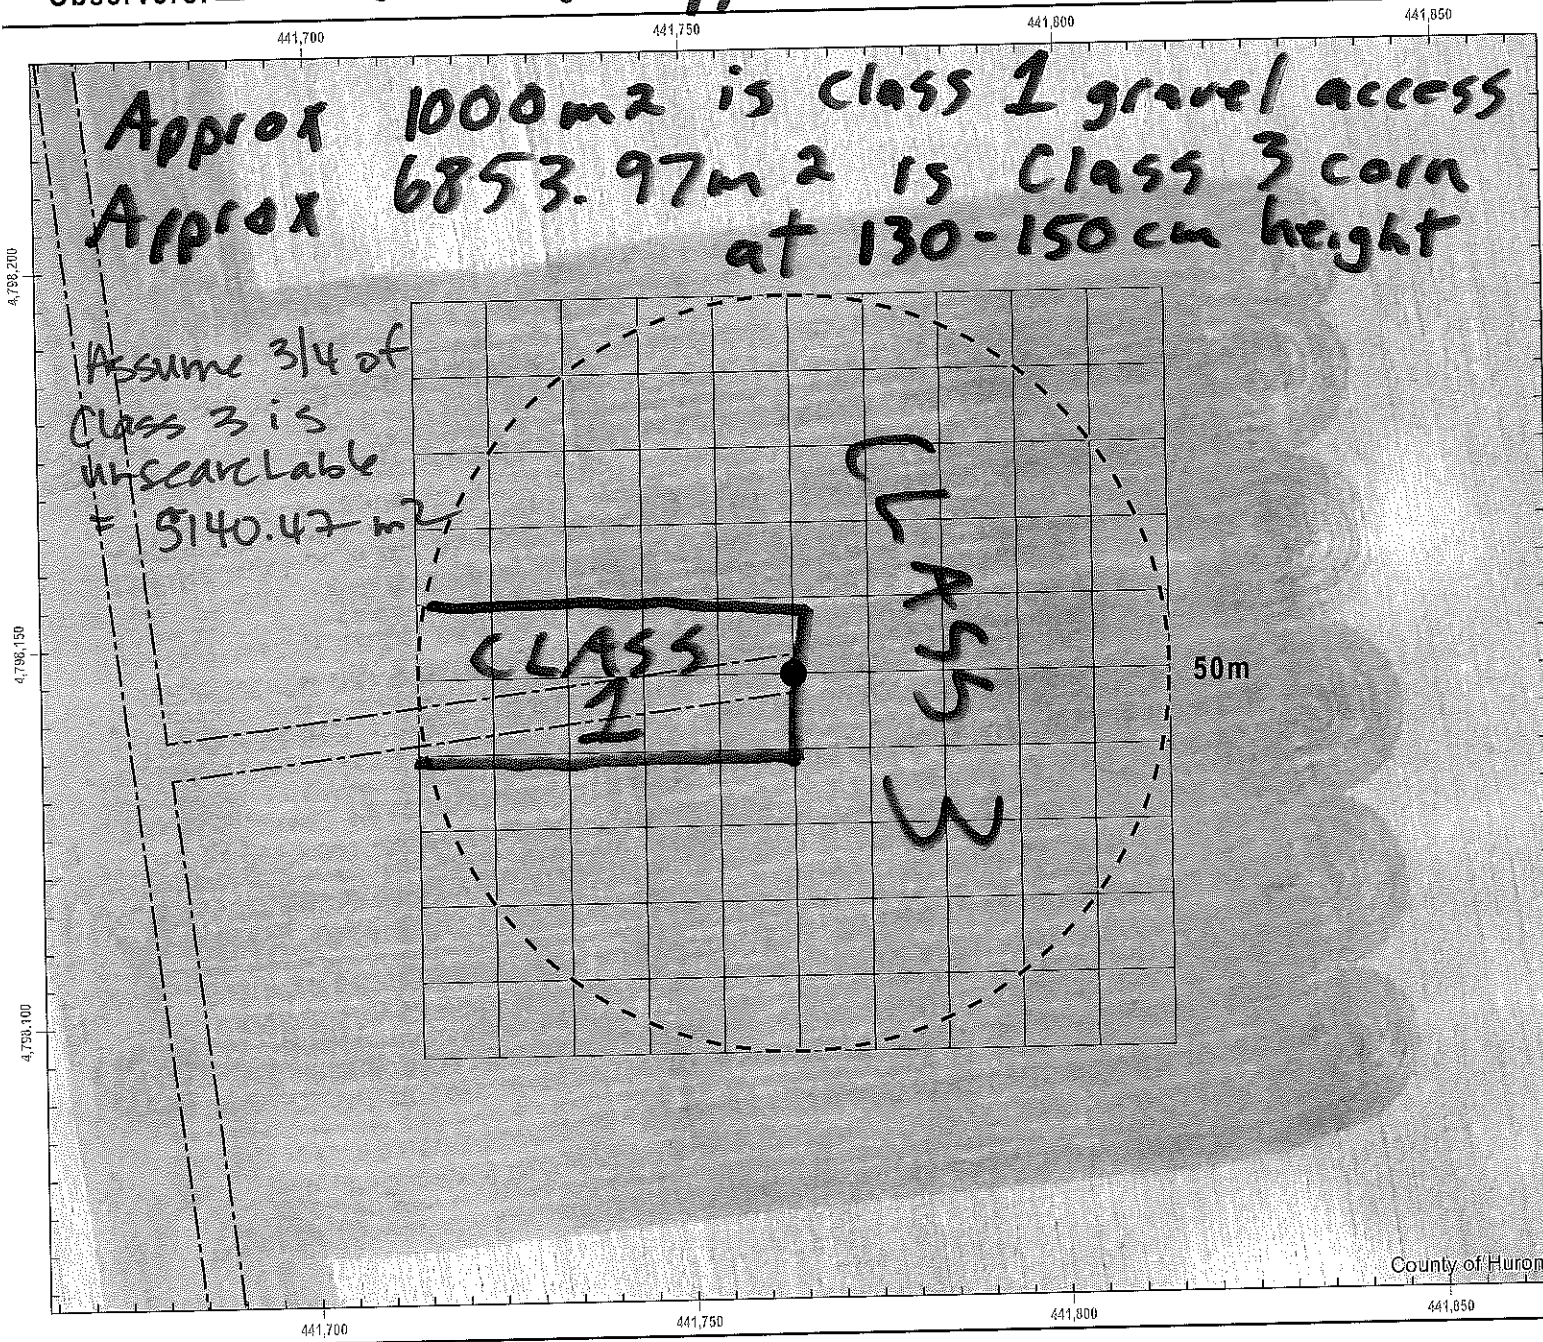 441,700 441,750 441,800 441,850
Approx 1000m2 is class 1 gravel access
Approx 6853.97m2 is Class 3 corn
at 130-150cm height
4,798,200
Assume 3/4 of
Class 3 is
unsearchable
= 5140.47 m2
CLASS
3
CLASS
1
4,798,150
50m
4,798,100
County of Huron
441,700 441,750 441,800 441,850